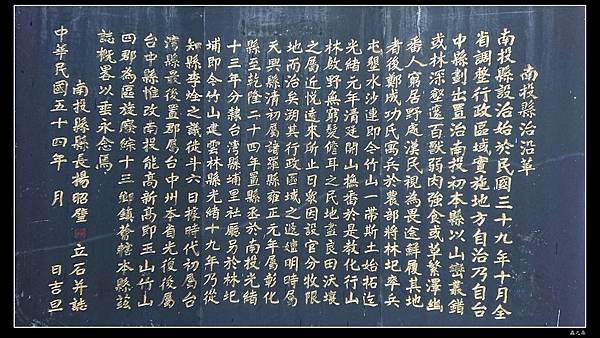 南投縣治沿革
南投縣設治始於民國三十九年十月全
省調整行政區域實施地方自治乃自台
中縣劃出置治南投初本縣以山巒叢錯
或林深壑邃百獸弱肉強食或草繁澤幽
番人窮居野處漢民視為畏途鮮履其地
者後鄭成功氏寓兵於農部將林圮率兵
屯墾水沙連即今竹山一帶斯土始拓迄
光緒元年清廷開山撫番於是教化行山
林啟野無窮髮儋耳之民地盡良田沃壤
之屬近悅遠來所止日眾因設官分牧限
地而治矣溯其行政區域之遞嬗明時屬
天興縣清初屬諸羅縣雍正元年屬彰化
縣至乾隆二十四年置縣丞於南投光緒
十三年分隸台灣縣埔里社廳另於林圮
埔即今竹山建雲林縣光緒十九年乃從
知縣李烇之議徙斗六日據時代初屬台
灣縣最後置郡屬台中州本省光復後屬
台中縣惟改南投能高新高即玉山竹山
四郡為區旋廢綜十三鄉鎮眷轄本縣茲
誌概畧以垂永念焉
南投縣縣長楊昭璧 立石并誌
中華民國五十四年 月 日吉旦